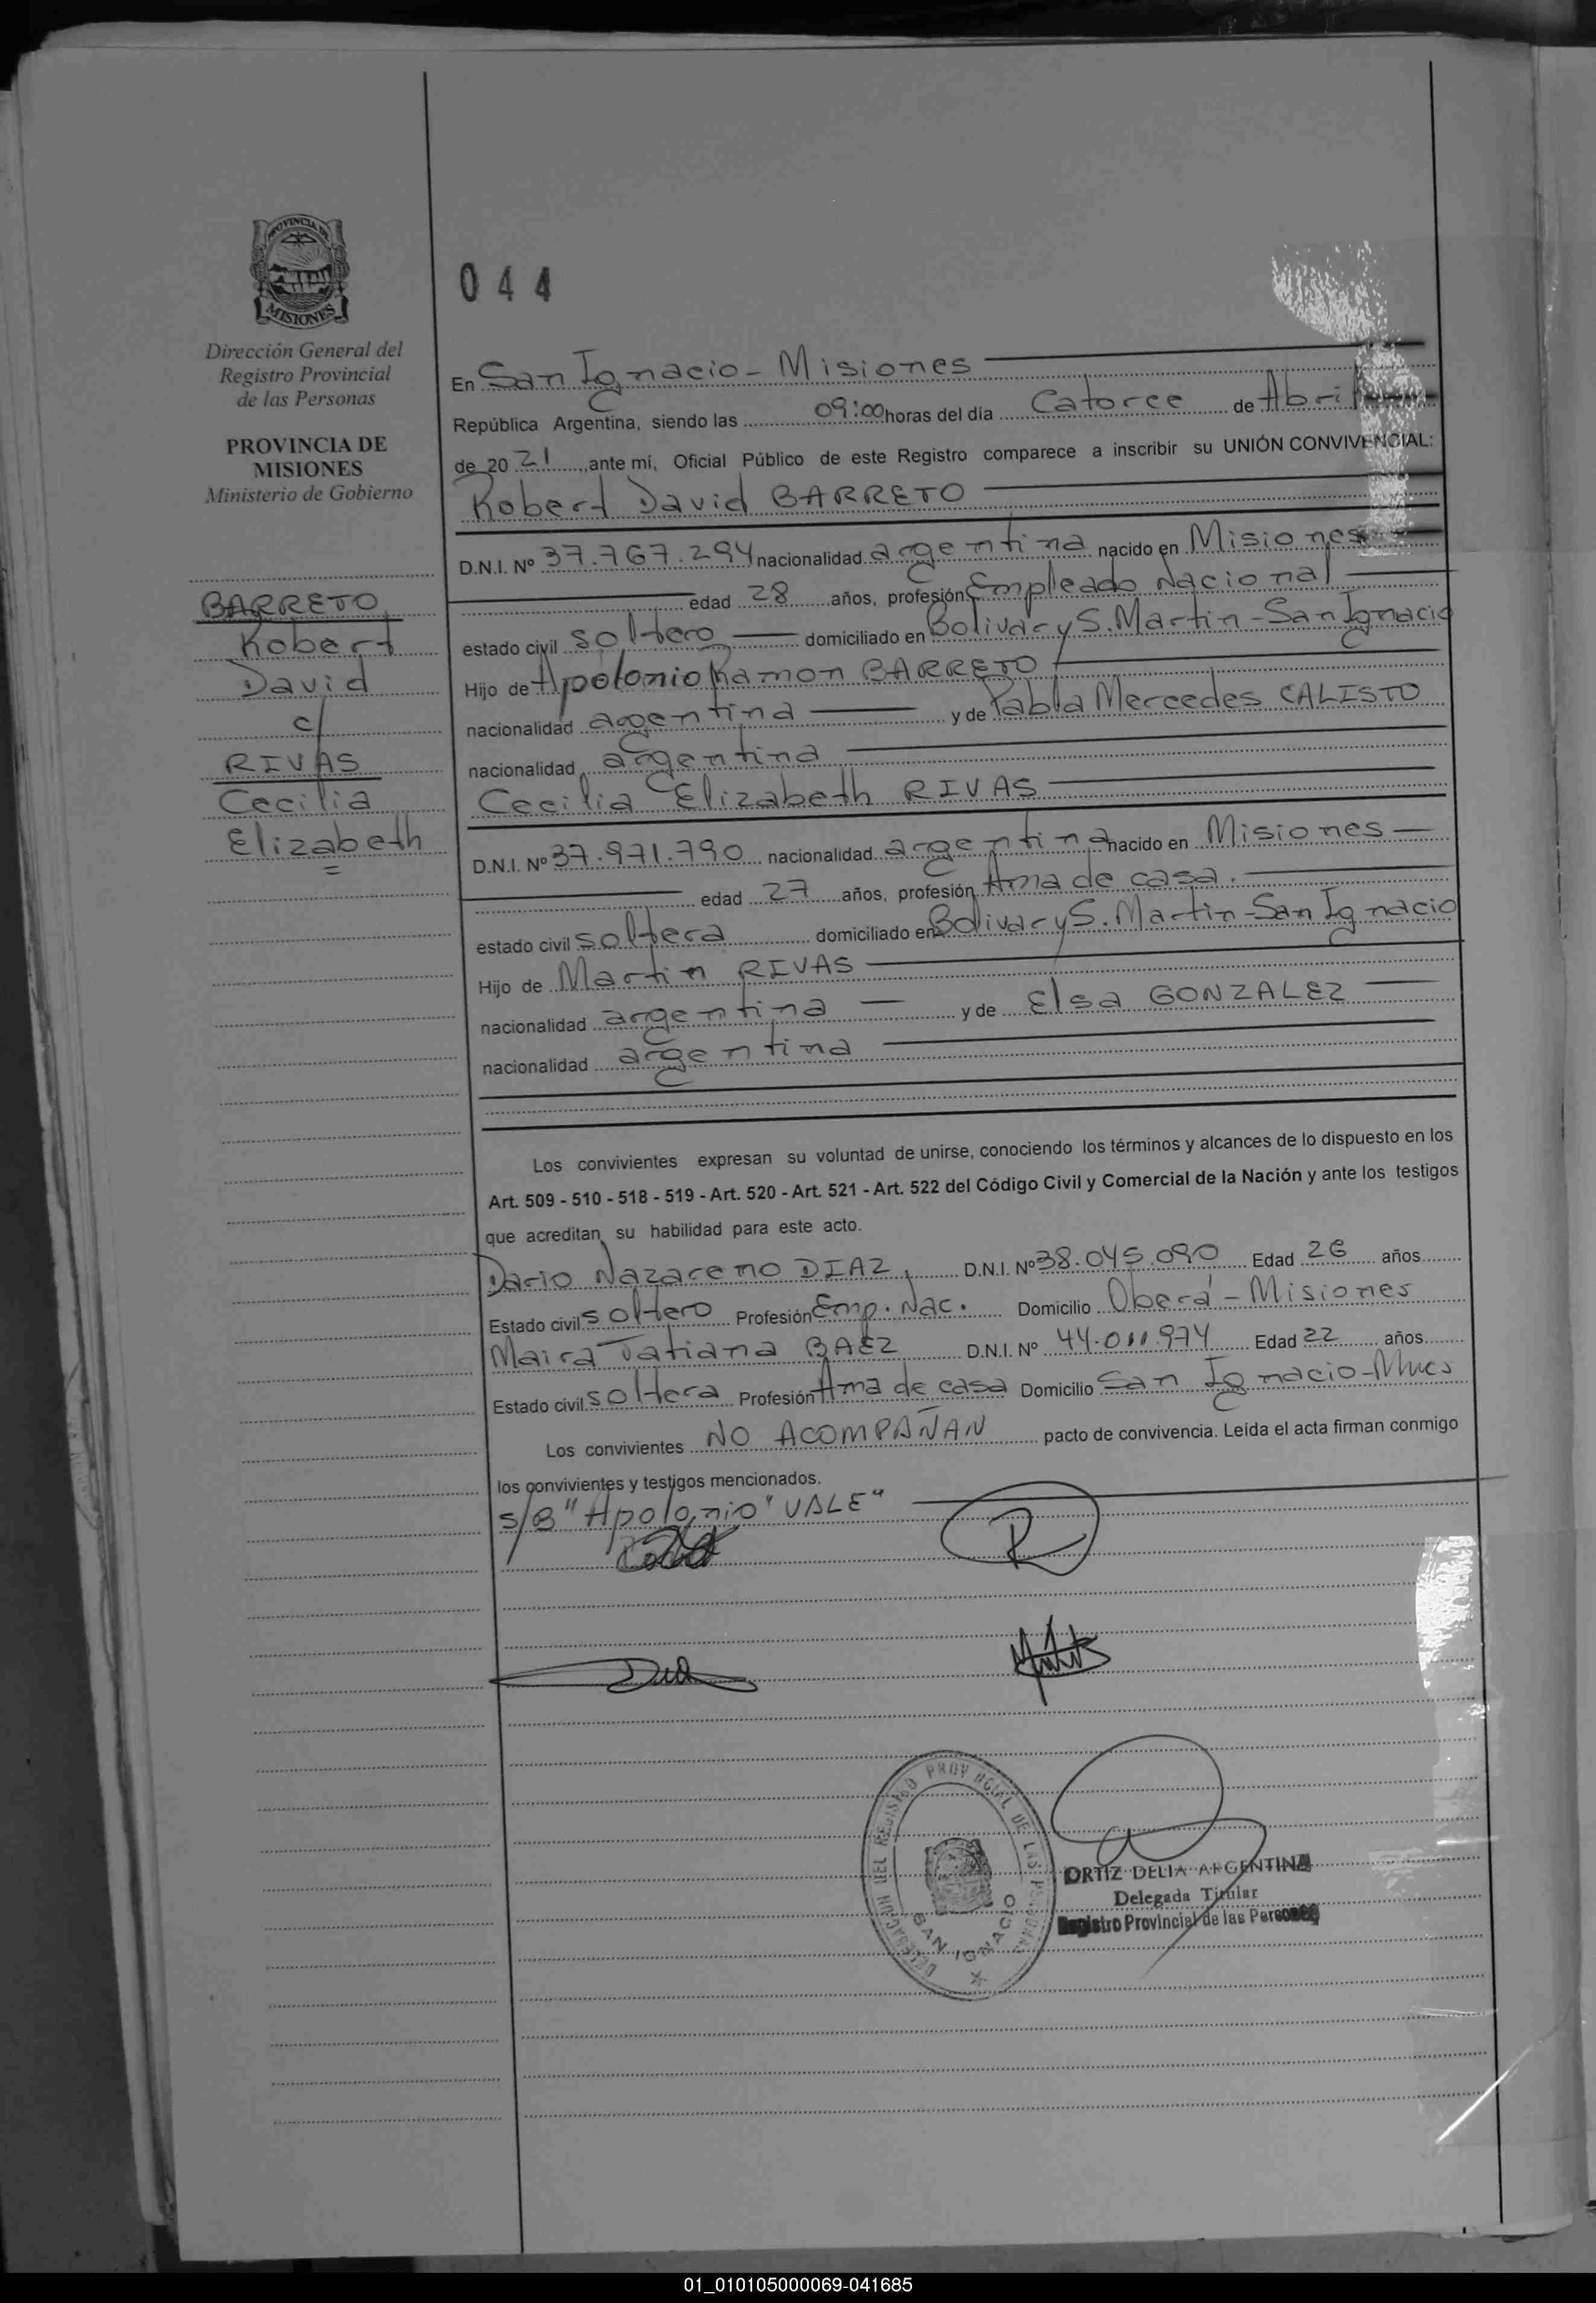 PROVINCIA DE
MISIONES
Dirección General del
Registro Provincial
de las Personas
PROVINCIA DE
MISIONES
Ministerio de Gobierno
BARRETO
Robert
David
c/
RIVAS
Cecilia
Elizabeth
=
044
En San Ignacio - Misiones
República Argentina, siendo las 09:00 horas del día Catorce de Abril
de 20 21, ante mí, Oficial Público de este Registro comparece a inscribir su UNIÓN CONVIVENCIAL:
Robert David BARRETO
D.N.I. Nº 37.767.294 nacionalidad argentina nacido en Misiones
edad 28 años, profesión Empleado Nacional
estado civil soltero domiciliado en Bolivar y S. Martin - San Ignacio
Hijo de Apolonio Ramon BARRETO
nacionalidad argentina y de Pabla Mercedes CALISTO
nacionalidad argentina
Cecilia Elizabeth RIVAS
D.N.I. Nº 37.971.790 nacionalidad argentina nacido en Misiones
edad 27 años, profesión Ama de casa.
estado civil soltera domiciliado en Bolivar y S. Martin - San Ignacio
Hijo de Martin RIVAS
nacionalidad argentina y de Elsa GONZALEZ
nacionalidad argentina
Los convivientes expresan su voluntad de unirse, conociendo los términos y alcances de lo dispuesto en los
Art. 509 - 510 - 518 - 519 - Art. 520 - Art. 521 - Art. 522 del Código Civil y Comercial de la Nación y ante los testigos
que acreditan su habilidad para este acto.
Dario Nazareno DIAZ, D.N.I. Nº 38.045.090 Edad 26 años
Estado civil soltero Profesión Emp. Nac. Domicilio Oberá - Misiones
Maira Tatiana BAEZ D.N.I. Nº 44.011.974 Edad 22 años
Estado civil soltera Profesión Ama de casa Domicilio San Ignacio - Mnes
Los convivientes NO ACOMPAÑAN pacto de convivencia. Leída el acta firman conmigo
los convivientes y testigos mencionados.
S/B "Apolonio" VALE"
R
DELEGACION DEL REGISTRO PROVINCIAL DE LAS PERSONAS
SAN IGNACIO
ORTIZ DELIA ARGENTINA
Delegada Titular
Registro Provincial de las Personas
01_010105000069-041685